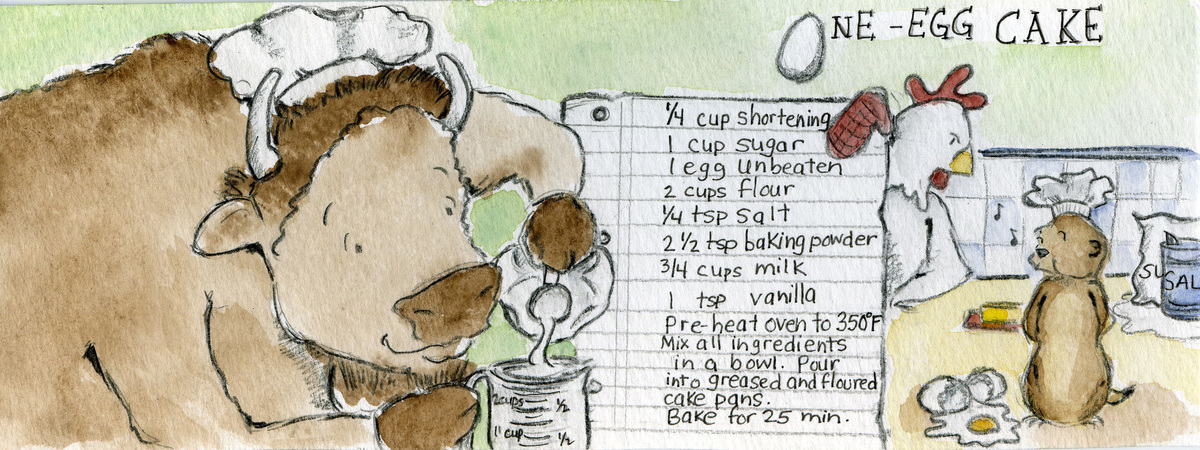 NE-EGG CAKE
1/4 cup shortening
1 cup sugar
1 egg unbeaten
2 cups flour
1/4 tsp salt
2 1/2 tsp baking powder
3/4 cups milk
1 tsp vanilla
Pre-heat oven to 350°F
Mix all ingredients
in a bowl. Pour
into greased and floured
cake pans.
Bake for 25 min.
SU
SAL
2cups 1/2
1 cup 1/2